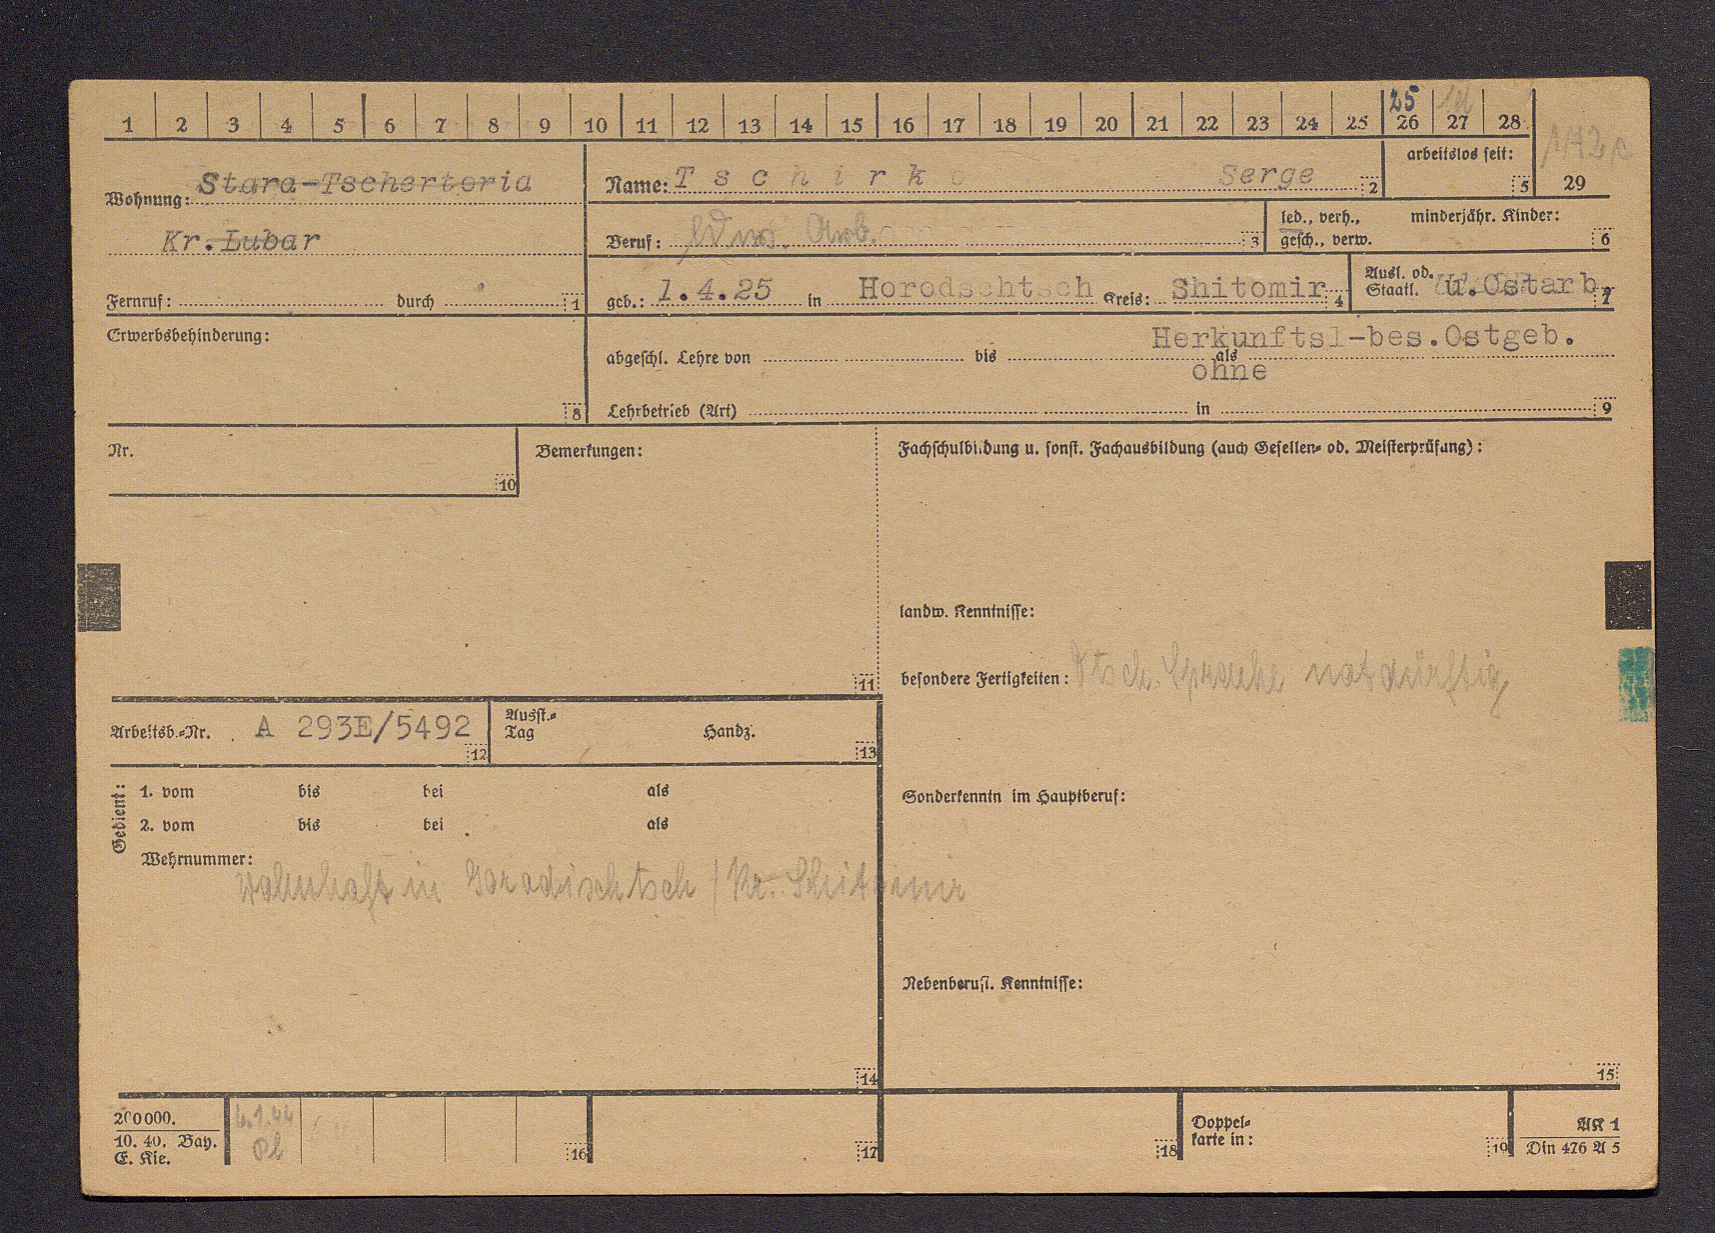 1 2 3 4 5 6 7 8 9 10 11 12 13 14 15 16 17 18 19 20 21 22 23 24 25 26 27 28
25
arbeitslos seit:
5
29
Wohnung: Stara-Tschertoria
Kr. Lubar
Fernruf: durch 1
Name: Tschirko Serge 2
Beruf: ldw. Arb. 3
led., verh., gesch., verw.
minderjähr. Kinder: 6
geb.: 1.4.25 in Horodschtsch Kreis: Shitomir 4
Ausl. od. Staatl. u.Ostarb. 7
Erwerbsbehinderung:
8
Herkunftsl-bes.Ostgeb.
abgeschl. Lehre von bis als
ohne
Lehrbetrieb (Art) in 9
Nr.
10
Bemerkungen:
11
Fachschulbildung u. sonst. Fachausbildung (auch Gesellen- od. Meisterprüfung):
landw. Kenntnisse:
besondere Fertigkeiten: Dtsch. Sprache notdürftig
Arbeitsb.-Nr. A 293E/5492 12
Ausst.-Tag Handz. 13
Gedient:
1. vom bis bei als
2. vom bis bei als
Wehrnummer:
wohnhaft in Gorodischtsch / Kr. Shitomir
14
Sonderkenntn im Hauptberuf:
Nebenberufl. Kenntnisse:
15
200000.
10. 40. Bay.
E. Kie.
6.1.44
16
17
18
Doppel-
karte in:
19
AK 1
Din 476 A 5